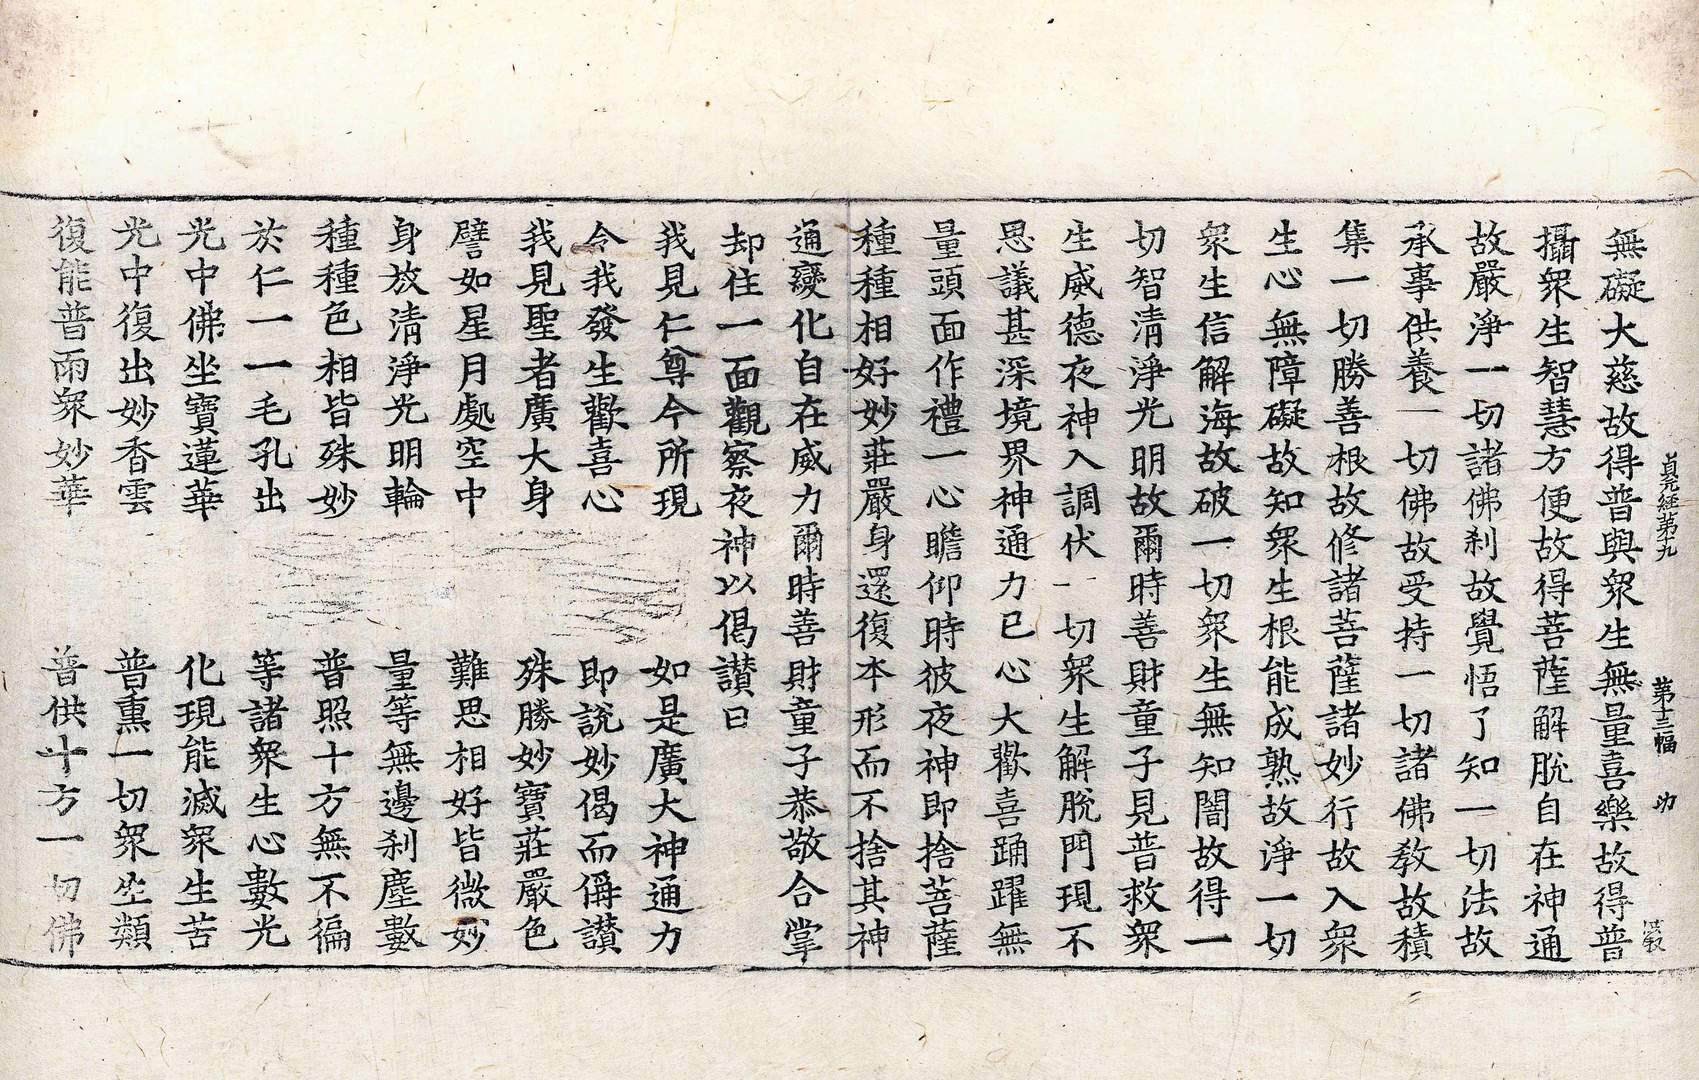 貞元經第九 第十三幅 功
無礙大慈故得普與衆生無量喜樂故得普
攝衆生智慧方便故得菩薩解脫自在神通
故嚴淨一切諸佛刹故覺悟了知一切法故
承事供養一切佛故受持一切諸佛教故積
集一切勝善根故修諸菩薩諸妙行故入衆
生心無障礙故知衆生根能成熟故淨一切
衆生信解海故破一切衆生無知闇故得一
切智清淨光明故爾時善財童子見普救衆
生威德夜神入調伏一切衆生解脫門現不
思議甚深境界神通力已心大歡喜踊躍無
量頭面作禮一心瞻仰時彼夜神即捨菩薩
種種相好妙莊嚴身還復本形而不捨其神
通變化自在威力爾時善財童子恭敬合掌
却住一面觀察夜神以偈讃曰
我見仁尊今所現 如是廣大神通力
令我發生歡喜心 即說妙偈而偁讃
我見聖者廣大身 殊勝妙寶莊嚴色
譬如星月處空中 難思相好皆微妙
身放清淨光明輪 量等無邊刹塵數
種種色相皆殊妙 普照十方無不徧
於仁一一毛孔出 等諸衆生心數光
光中佛坐寶蓮華 化現能滅衆生苦
光中復出妙香雲 普熏一切衆生類
復能普雨衆妙華 普供十方一切佛